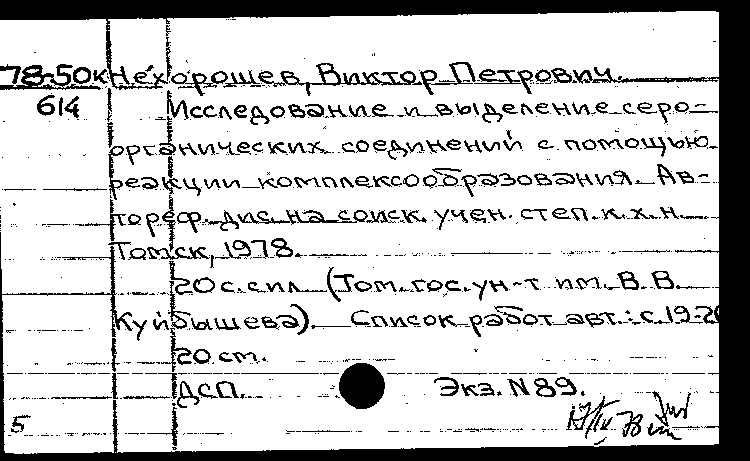 78-50к Нехорошев, Виктор Петрович.
614 Исследование и выделение серо-
органических соединений с помощью
реакции комплексообразования. Ав-
тореф. дис. на соиск. учен. степ. к. х. н.
Томск, 1978.
20 с. с ил. (Том. гос. ун-т им. В. В.
Куйбышева). Список работ авт.: с. 19-20
20 см.
ДСП. Экз. N 89.
5